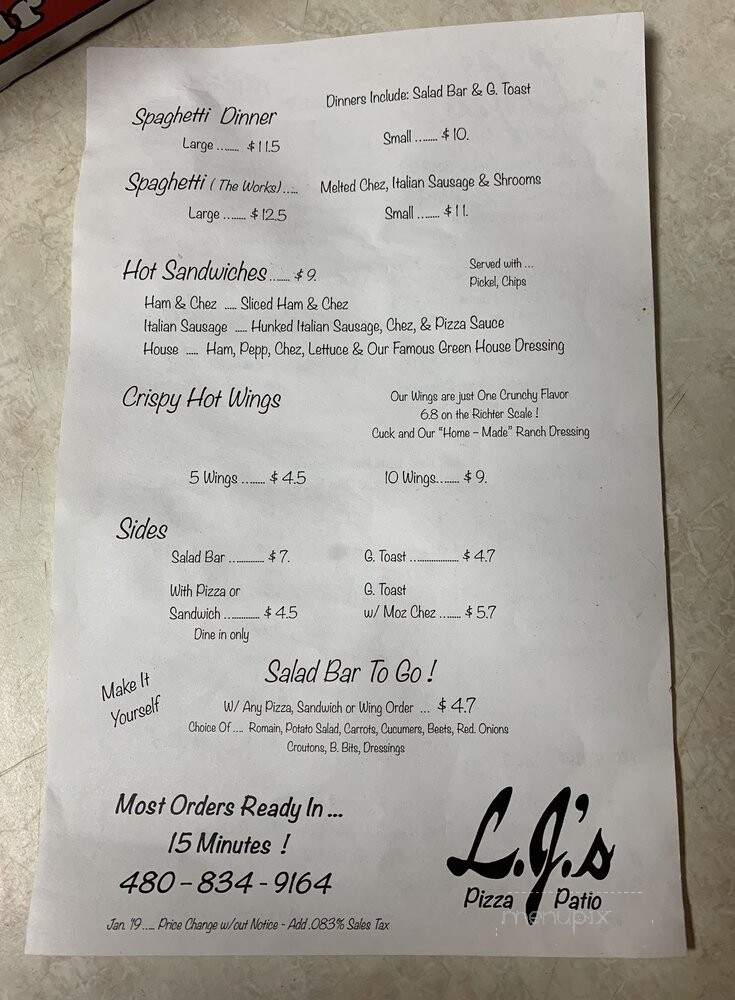 Spaghetti Dinner Dinners Include: Salad Bar & G. Toast
Large ........ $11.5 Small ........ $10.
Spaghetti (The Works)..... Melted Chez, Italian Sausage & Shrooms
Large ........ $12.5 Small ........ $11.
Hot Sandwiches ........ $9. Served with ...
Pickel, Chips
Ham & Chez ..... Sliced Ham & Chez
Italian Sausage ..... Hunked Italian Sausage, Chez, & Pizza Sauce
House ..... Ham, Pepp, Chez, Lettuce & Our Famous Green House Dressing
Crispy Hot Wings Our Wings are just One Crunchy Flavor
6.8 on the Richter Scale !
Cuck and Our "Home – Made" Ranch Dressing
5 Wings ......... $4.5 10 Wings......... $9.
Sides
Salad Bar .............. $7. G. Toast .................... $4.7
With Pizza or G. Toast
Sandwich .............. $4.5 w/ Moz Chez ........ $5.7
Dine in only
Make It
Yourself
Salad Bar To Go !
W/ Any Pizza, Sandwich or Wing Order ... $4.7
Choice Of .... Romain, Potato Salad, Carrots, Cucumers, Beets, Red. Onions
Croutons, B. Bits, Dressings
Most Orders Ready In ...
15 Minutes !
480 – 834 – 9164
L.J.'s
Pizza Patio
menupix
Jan. '19..... Price Change w/out Notice - Add .083% Sales Tax